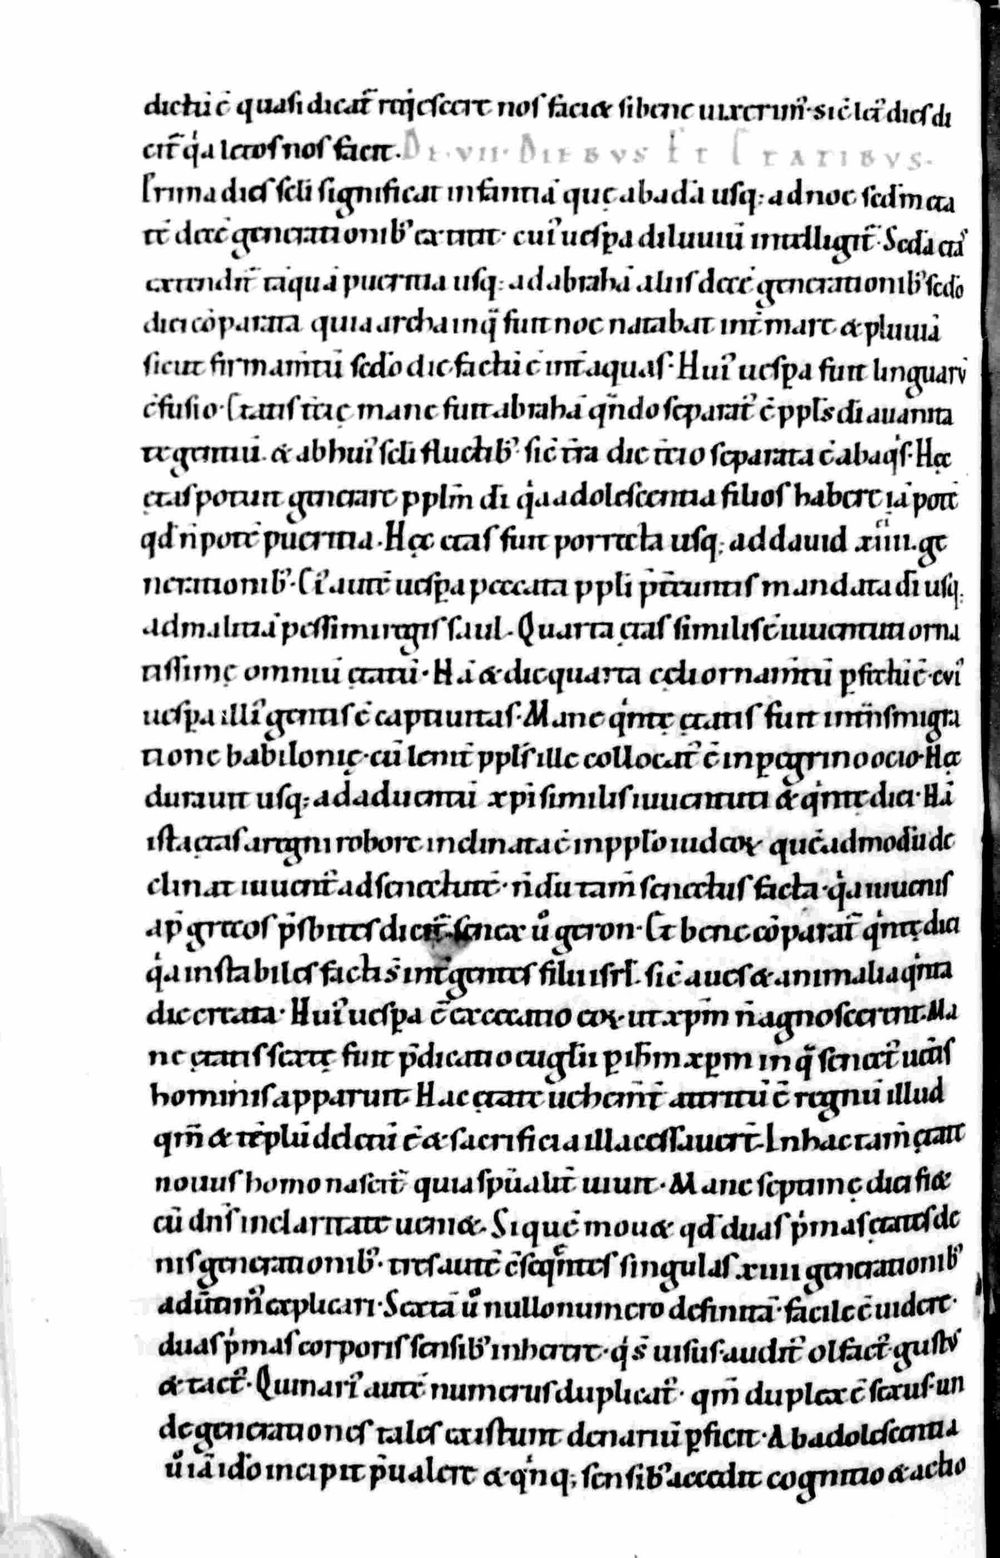 dictū ē quasi dicat᷑ req̇escere nos faciet si bene uixerim᷒· sic̄ let᷑ dies di
cit᷑ q̇a letos nos facit. DE·VII·DIEBVS ET ETATIBVS·
Prima dies scl̄i significat infantiā quę ab adā usq; ad noe sed in eta
te decē generationib᷒ extitit· cui᷒ uespa diluuiū intelligit᷑· Scd̄a etas
extendit᷑ tāquā pueritia usq; ad abrahā aliis decē generationib᷒ scd̄o
diei cōparata quia archa in q̄ fuit noe natabat int̄ mare & pluuiā
sicut firmam̄tū scd̄o die factū ē int̄ aquas· Hui᷒ uesp̱a fuit linguarū
c̄fusio· Etatis t̄cię mane fuit abrahā qn̄do separat᷒ ē ppl̄s dī a uanita
te gentiū· & ab hui᷒ scl̄i fluctib᷒ sic̄ tr̄a die t̄cio separata ē ab aq̇s· Hęc
ętas potuit generare ppl̄m dī q̇a adolescentia filios habere iā potē
qd̄ n̄ potē pueritia· Hęc etas fuit porrecta usq; ad dauid xiiii· ge
nerationib᷒· Ei᷒ autē uesp̱a peccata ppl̄i p̄t̄euntis mandata dī usq;
ad malitiā pessimi regis saul· Quarta ętas similis ē iuuentuti orna
tissimę omniū ętatū· Nā & die quarta cęli ornam̄tū p̱fectū ē· cui᷒
uesp̱a illi᷒ gentis ē captiuitas· Mane q̇ntę ętatis fuit int̄nsmigra
tione babilonię· cū lenit̄ ppl̄s ille collocat᷒ ē in p̱egrino ocio· Hęc
durauit usq; ad aduentū xp̄i similis iuuentuti & q̇ntę diei· Nā
ista ętas a regni robore inclinata ē in ppl̄o iudeoꝝ quē admodū de
clinat iuuent᷒ ad senectutē· n̄dū tam̄ senectus facta· q̇a iuuenis
ap̄ grecos p̄sbites dicit᷑· senex ů geron· Et bene cōparat᷑ q̇ntę diei
q̇a instabiles facti s̄ int̄ gentes filii isrl̄· sic̄ aues & animalia q̇nta
die creata· Hui᷒ uesp̱a ē excecatio eoꝝ ut xp̄m n̄ agnoscerent· Ma
ne ętatis sextę fuit p̄dicatio euglīi p̱ ih̄m xp̄m in q̄ senect᷒ uet̄is
hominis apparuit· Hac ętate uehem̄t̄ attritū ē regnū illud
qm̄ & tēplū deletū ē & sacrificia illa cessauer̄t· In hac tam̄ ętate
nouus homo nascit᷑ quia spūalit̄ uiuit· Mane septimę diei fiet
cū dn̄s in claritate ueniet· Si quē mouet qd̄ duas ṗmas ętates de
nis generationib᷒· tres autē c̄seq̄ntes singulas xiiii generationib᷒
aduītim᷒ explicari· Sextā ů nullo numero definitā· facile ē uidere·
duas ṗmas corporis sensib᷒ inherere· q̇ s̄ uisus· audit᷒ olfact᷒· gustus
& tact᷒· Quinari᷒ autē numerus duplicat᷑· qm̄ duplex ē sexus· un
de generationes tales existunt denariū p̱ficit· Ab adolescentia
ů iā id̄o incipit p̄ualere & q̇nq; sensib᷒ accedit cognitio & actio